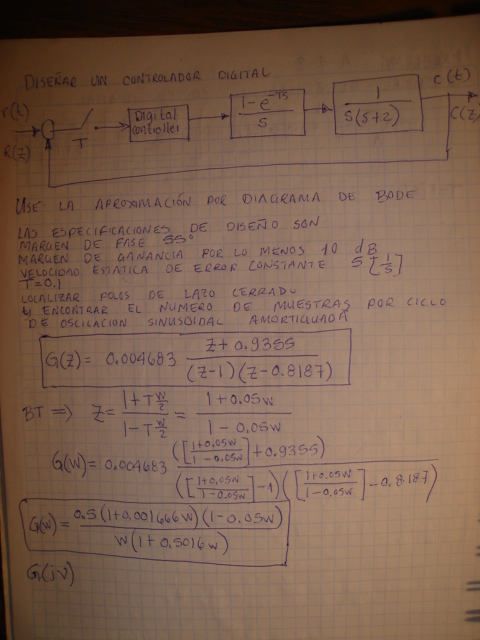 DISEÑAR UN CONTROLADOR DIGITAL
r(t) c(t)
R(z) T Digital controller 1-e^-TS / S 1 / S(S+2) C(z)
USE LA APROXIMACIÓN POR DIAGRAMA DE BODE
LAS ESPECIFICACIONES DE DISEÑO SON
MARGEN DE FASE 55°
MARGEN DE GANANCIA POR LO MENOS 10 dB
VELOCIDAD ESTATICA DE ERROR CONSTANTE 5 [1/S]
T=0.1
LOCALIZAR POLOS DE LAZO CERRADO
Y ENCONTRAR EL NUMERO DE MUESTRAS POR CICLO
DE OSCILACION SINUSOIDAL AMORTIGUADA
G(z) = 0.004683 (z+0.9355) / ((z-1)(z-0.8187))
BT ⇒ z = (1+T w/2) / (1-T w/2) = (1+0.05w) / (1-0.05w)
G(w) = 0.004683 ([(1+0.05w)/(1-0.05w)]+0.9355) / (([(1+0.05w)/(1-0.05w)]-1)([(1+0.05w)/(1-0.05w)]-0.8187))
G(w) = 0.5(1+0.001666w)(1-0.05w) / (w(1+0.5016w))
G(jv)